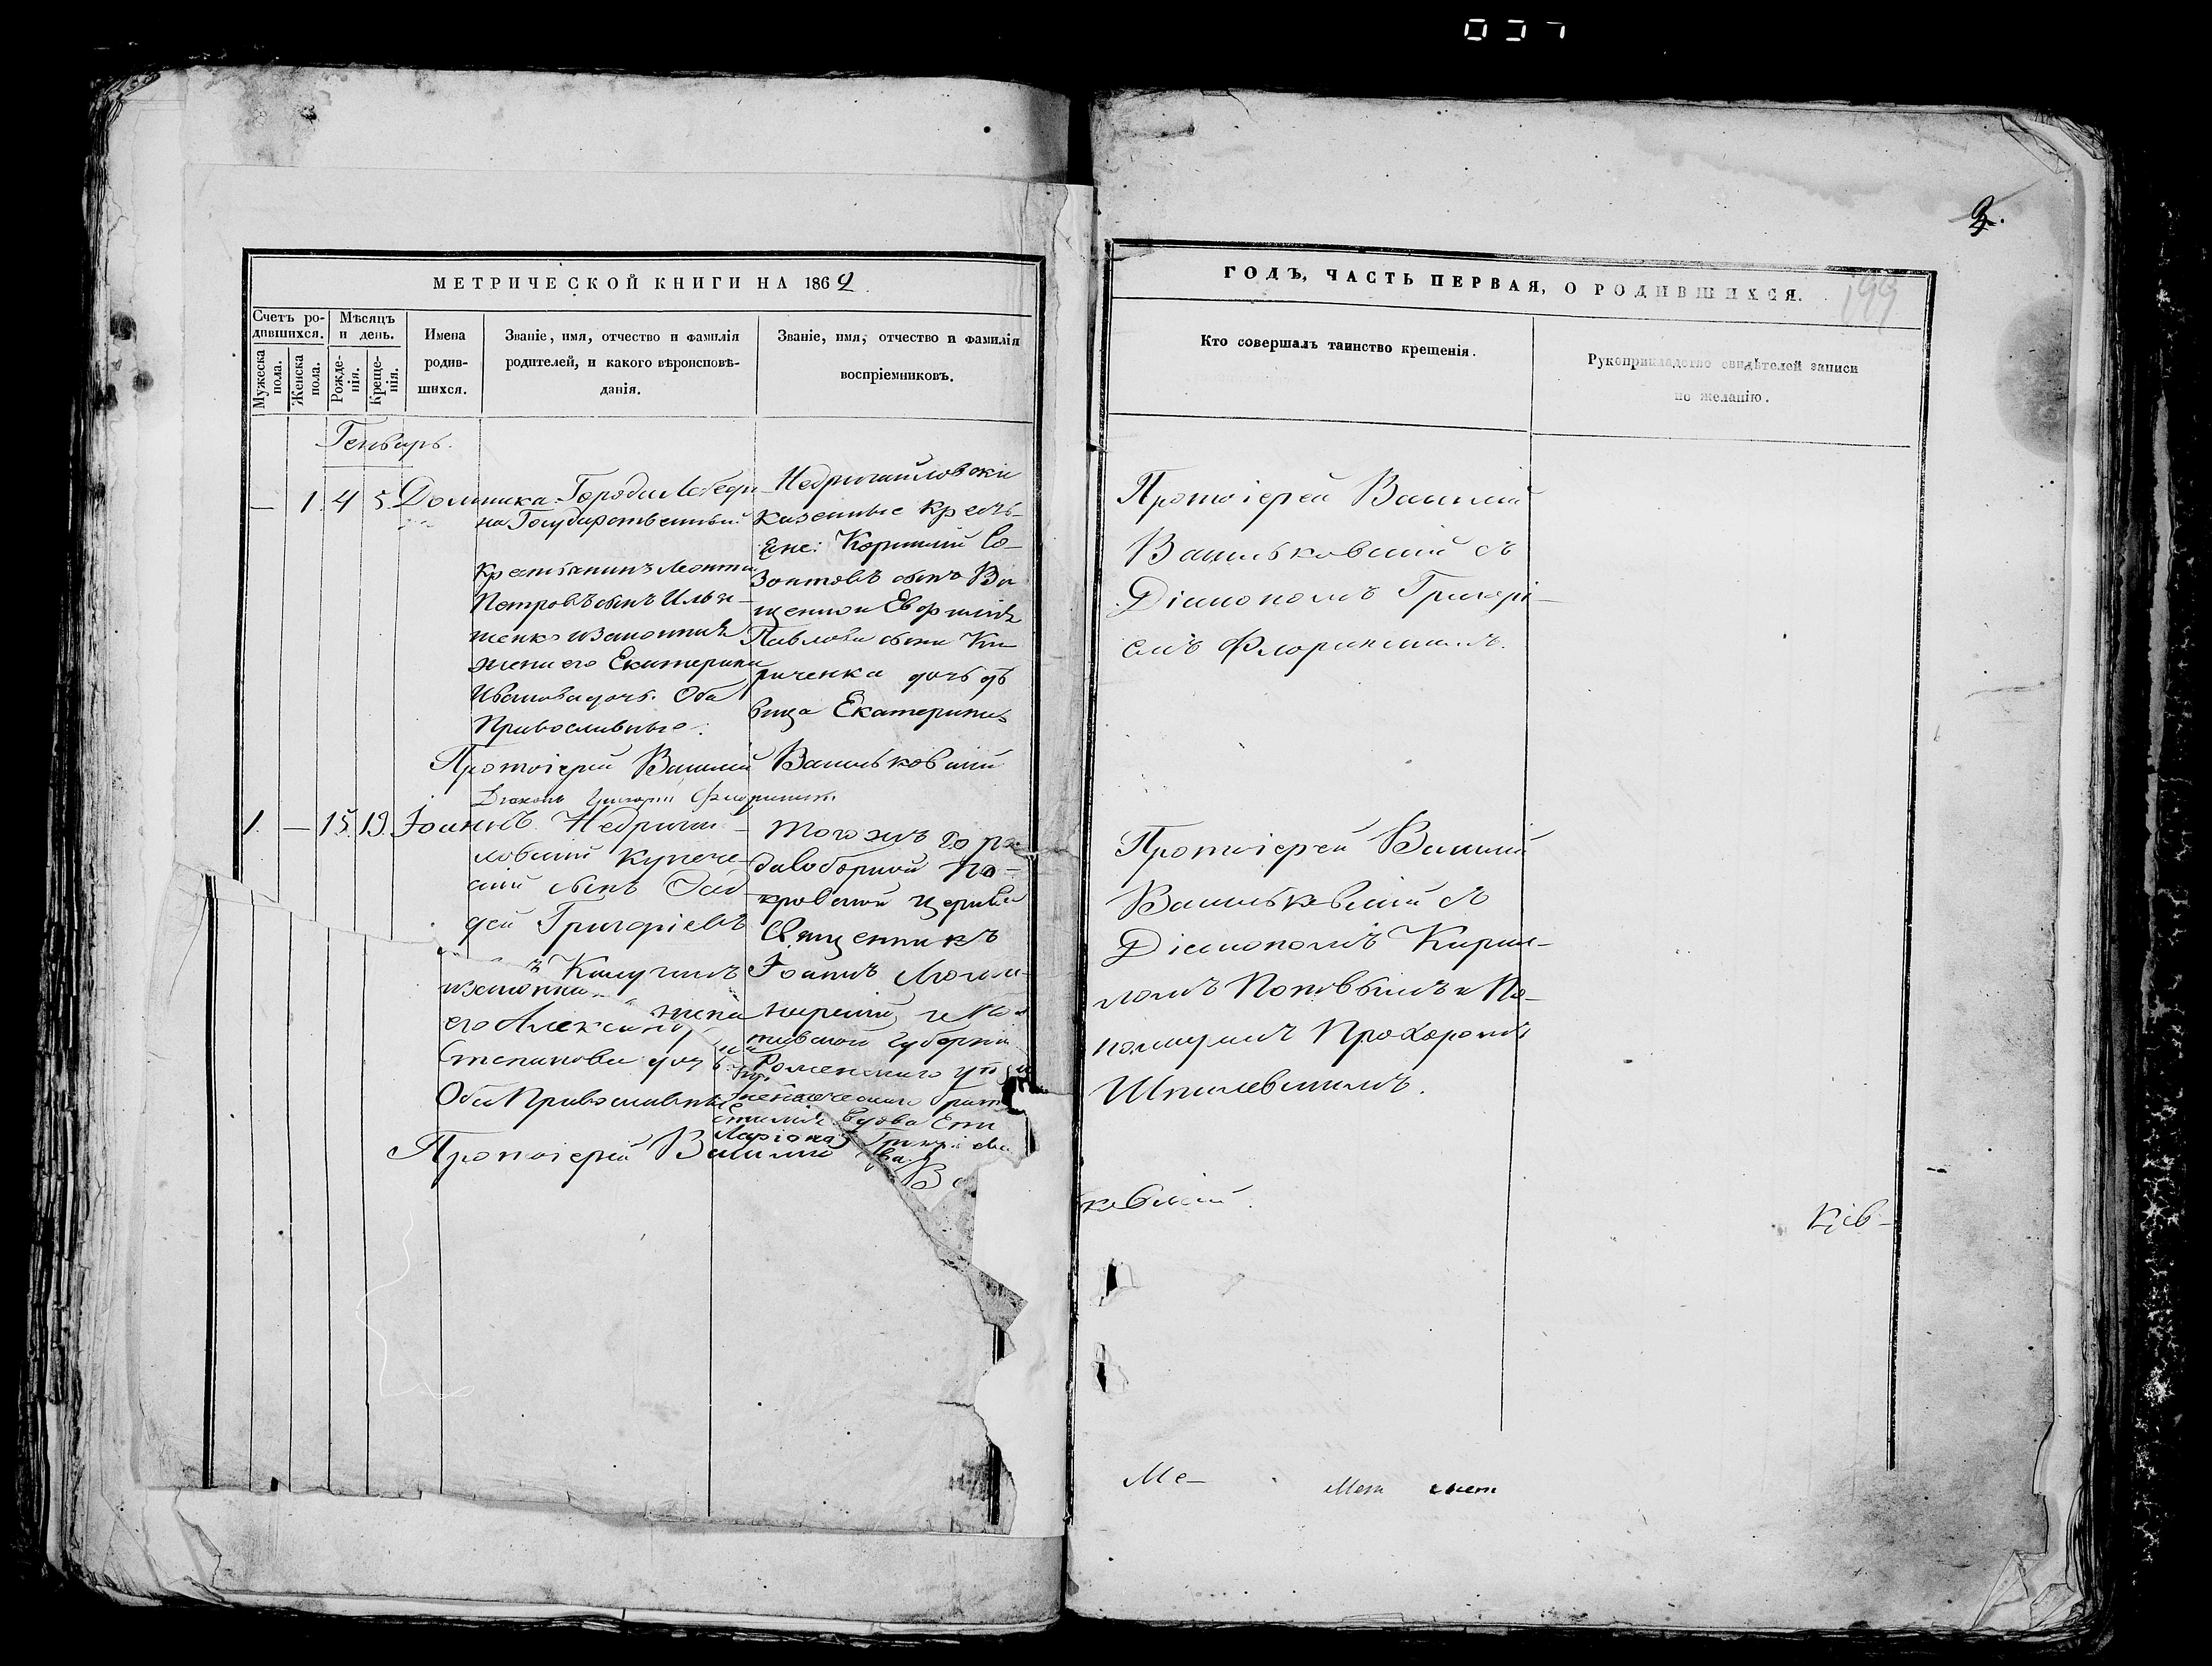 037
2.
199
МЕТРИЧЕСКОЙ КНИГИ НА 1862
Счетъ ро-
дившихся.
Мѣсяцъ
и день.
Мужеска
пола.
Женска
пола.
Рожде-
нія.
Креще-
нія.
Имена
родив-
шихся.
Званіе, имя, отчество и фамилія
родителей, и какого вѣроисповѣ-
данія.
Званіе, имя, отчество и фамилія
воспріемниковъ.
Генварь.
— 1 4 5 Домника
Города Лебеди
на Государственный
Крестьянинъ Леонтій
Петровъ сынъ Илья-
шенко и законная
жена его Екатерина
Иванова дочь. Оба
Православные.
Недригайловскіе
казенные кресть-
яне: Корнилій Со-
зонтовъ сынъ
Павлова сына Ки
риченка дочь дѣ
вица Екатерина
Протоіерей Василій Васильковскій
Діаконъ Григорій
1. — 15 19 Іоаннъ
Недригай-
ловскій купече-
скій сынъ
дей Григоріевъ
и законная
жена
его Александра
Степанова дочь
Оба Православные
Того же горо
да Соборной По-
кровской церкви
Священникъ
Іоаннъ
и Пол
тавской губерніи
Роменскаго уѣзда
вдова
Протоіерей Василій
В
ГОДЪ, ЧАСТЬ ПЕРВАЯ, О РОДИВШИХСЯ.
Кто совершалъ таинство крещенія.
Рукоприкладство свидѣтелей записи
по желанію.
Протоіерей Василій
Васильковскій съ
Діакономъ Григорі-
емъ Флоринскимъ.
Протоіерей Василій
Васильковскій съ
Діакономъ Кирил-
ломъ Поповымъ и По-
номаремъ Прохоромъ
Шпилевскимъ.
ковскій.
Ме-
Мет